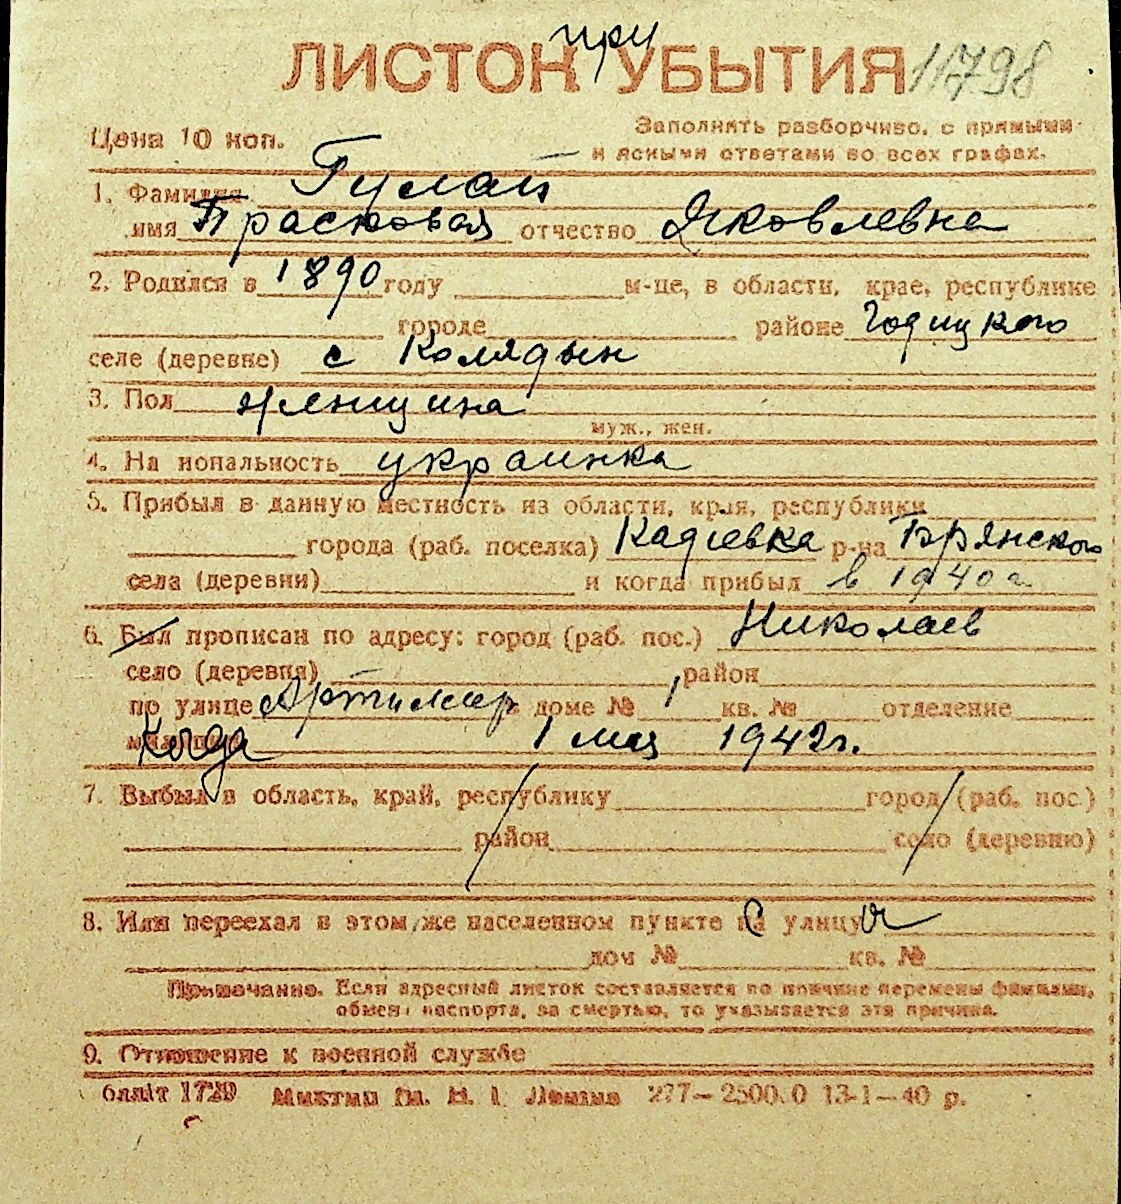 при
ЛИСТОК УБЫТИЯ 11798
Цена 10 коп.
Заполнять разборчиво, с прямыми
и ясными ответами во всех графах.
1. Фамилия Гулай
имя Прасковая отчество Яковлевна
2. Родился в 1890 году м-це, в области, крае, республике
городе районе Годицкого
селе (деревне) с Колядын
3. Пол женщина
муж., жен.
4. На иональность украинка
5. Прибыл в данную местность из области, края, республики
города (раб. поселка) Кадиевка р-на Брянского
села (деревни) и когда прибыл в 1940 г
6. Был прописан по адресу: город (раб. пос.) Николаев
село (деревня) район
по улице доме № 1 кв. № отделение
Когда 1 мая 1942г.
7. Выбыл в область, край, республику город (раб. пос.)
район село (деревню)
8. Или переехал в этом же населенном пункте на улицу
дом № кв. №
Примечание. Если адресный листок составляется по причине перемены фамилии,
обмена паспорта, за смертью, то указывается эта причина.
9. Отношение к военной службе
6лліт 1729 277—2500.0 13-1—40 р.